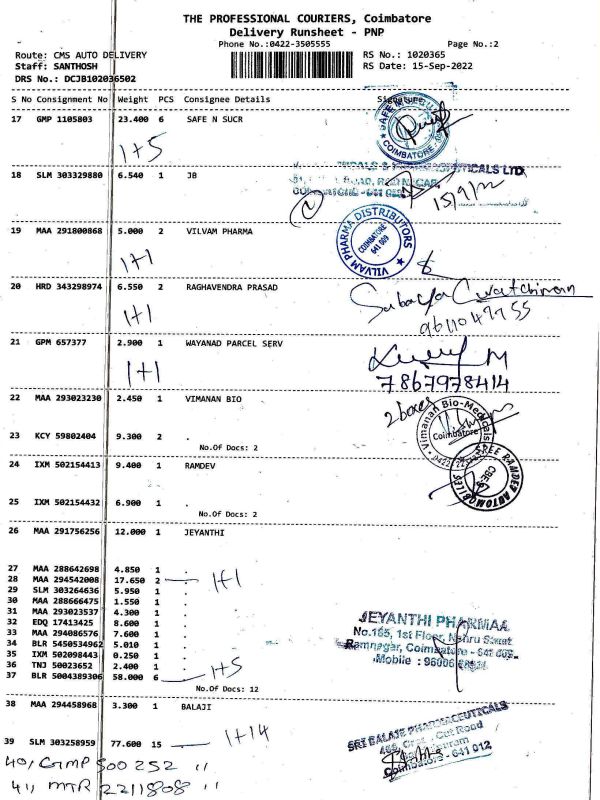 THE PROFESSIONAL COURIERS, Coimbatore
Delivery Runsheet - PNP
Phone No.:0422-3505555 Page No.:2
Route: CMS AUTO DELIVERY RS No.: 1020365
Staff: SANTHOSH RS Date: 15-Sep-2022
DRS No.: DCJB102036502
S No Consignment No Weight PCS Consignee Details Signature
17 GMP 1105803 23.400 6 SAFE N SUCR
COIMBATORE
1+5
18 SLM 303329880 6.540 1 JB
15/9/22
19 MAA 291800868 5.000 2 VILVAM PHARMA
VILVAM PHARMA DISTRIBUTORS
COIMBATORE
641 009
1+1
20 HRD 343298974 6.550 2 RAGHAVENDRA PRASAD
1+1
21 GPM 657377 2.900 1 WAYANAD PARCEL SERV
1+1
7867978414
22 MAA 293023230 2.450 1 VIMANAN BIO
2 boxes
Vimanan Bio-Medicals
Coimbatore
23 KCY 59802404 9.300 2 .
No.Of Docs: 2
24 IXM 502154413 9.400 1 RAMDEV
SREE RAMDEV AUTOMOBILES
CBE-9
25 IXM 502154432 6.900 1 .
No.Of Docs: 2
26 MAA 291756256 12.000 1 JEYANTHI
27 MAA 288642698 4.850 1 .
28 MAA 294542008 17.650 2 . 1+1
29 SLM 303264636 5.950 1 .
30 MAA 288666475 1.550 1 .
31 MAA 293023537 4.300 1 .
32 EDQ 17413425 8.600 1 .
33 MAA 294086576 7.600 1 .
34 BLR 5450534962 5.010 1 .
35 IXM 502098443 0.250 1 .
36 TNJ 50023652 2.400 1 .
37 BLR 5004389306 58.000 6 . 1+5
No.Of Docs: 12
JEYANTHI PHARMAA
No.165, 1st Floor, Nehru Street
Ramnagar, Coimbatore - 641 009
Mobile : 96006
38 MAA 294458968 3.300 1 BALAJI
39 SLM 303258959 77.600 15 1+14
SRI BALAJE PHARMACEUTICALS
Coimbatore - 641 012
40, GMP 500252 ,,
41, MTR 2211808 ,,